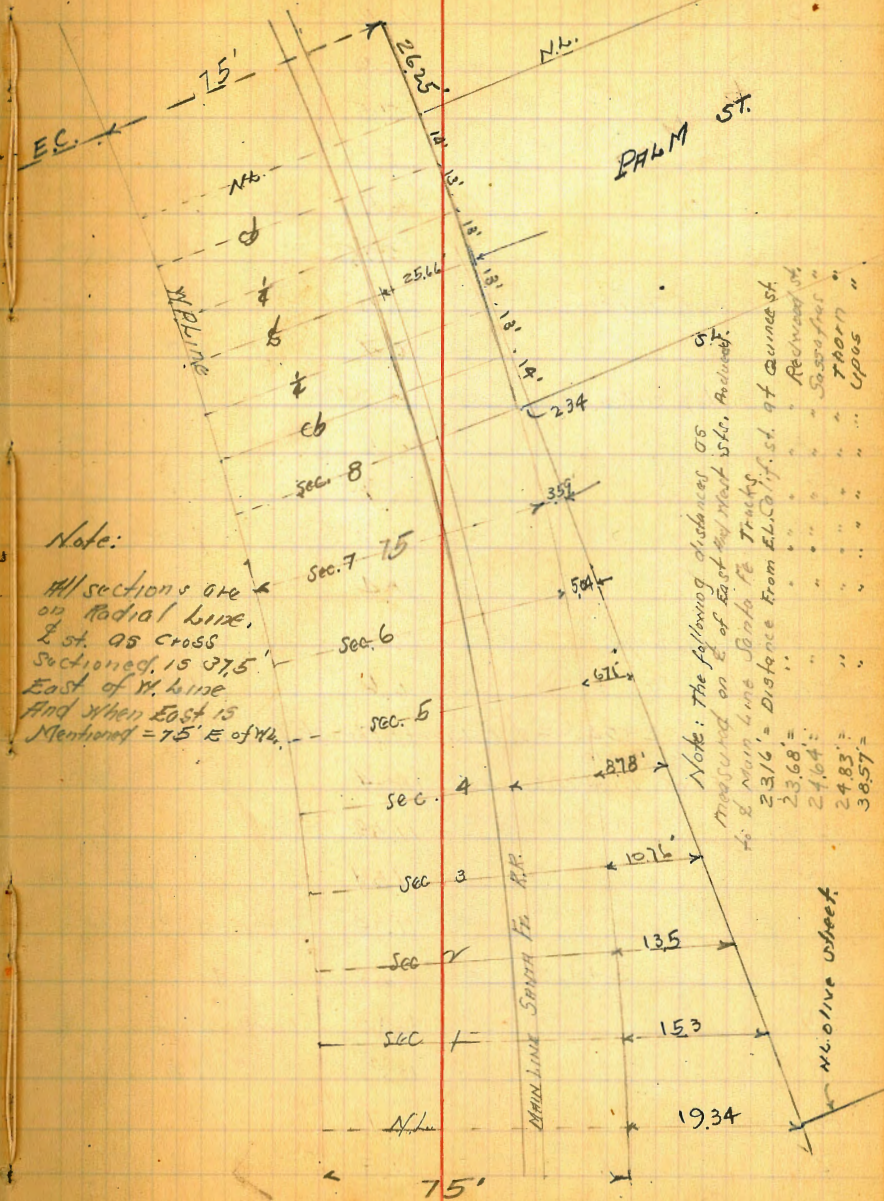 75'
26.25'
N.L.
E.C.
PALM ST.
14'
N.L.
13'
13'
25.66'
13'
W.P. Line
¼
13'
14'
¼
S.L.
234
Sec. 8
3.59
Sec. 7 75
5.04
Sec. 6
6.71'
Sec. 5
8.78'
Sec. 4
10.76'
Sec 3
13.5
Sec 2
15.3
Sec 1
19.34
N.L.
75'
MAIN LINE SANTA FE R.R.
N.L. Olive Street.
Note:
All sections are
on Radial Line,
℄ st. as cross
sectioned, is 37.5'
East of W. Line
And when East is
Mentioned = 75' E of WL.
Note: The following distances as
measured on ℄ of East And West sts.
to ℄ Main Line Santa Fe Tracks.
23.16' = Distance From E.L. Calif. st. at Quince st.
23.68' = " " " " " " Redwood st.
24.64' = " " " " " " Sassafras "
24.83' = " " " " " " Thorn "
38.57' = " " " " " " Upas "